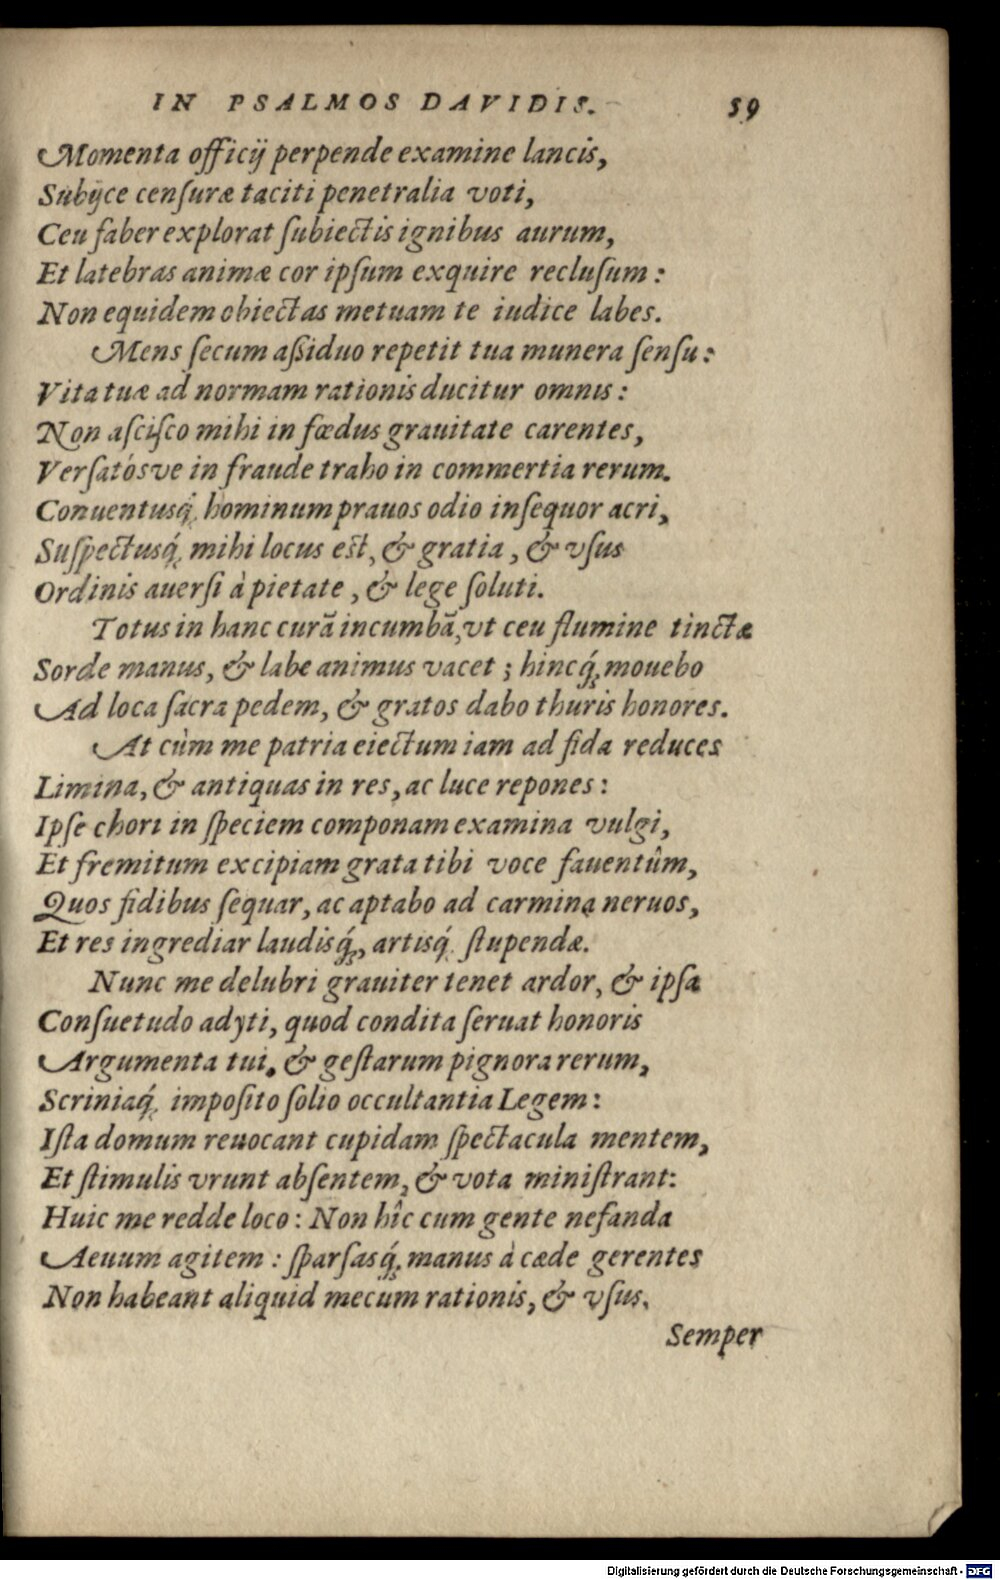 IN PSALMOS DAVIDIS. 59
Momenta officij perpende examine lancis,
Subijce censuræ taciti penetralia voti,
Ceu faber explorat ſubiectis ignibus aurum,
Et latebras animæ cor ipſum exquire recluſum:
Non equidem obiectas metuam te iudice labes.
Mens ſecum aſſiduo repetit tua munera ſenſu:
Vita tuæ ad normam rationis ducitur omnis:
Non aſciſco mihi in fœdus grauitate carentes,
Verſatósve in fraude traho in commertia rerum.
Conuentusq́; hominum prauos odio inſequor acri,
Suſpectusq́; mihi locus est, & gratia, & vſus
Ordinis auerſi à pietate, & lege ſoluti.
Totus in hanc curã incumbã, vt ceu flumine tinctæ
Sorde manus, & labe animus vacet; hincq́; mouebo
Ad loca ſacra pedem, & gratos dabo thuris honores.
At cùm me patria eiectum iam ad fida reduces
Limina, & antiquas in res, ac luce repones:
Ipſe chori in ſpeciem componam examina vulgi,
Et fremitum excipiam grata tibi voce fauentûm,
Quos fidibus ſequar, ac aptabo ad carmina neruos,
Et res ingrediar laudisq́;, artisq́; ſtupendæ.
Nunc me delubri grauiter tenet ardor, & ipſa
Conſuetudo adyti, quod condita ſeruat honoris
Argumenta tui, & geſtarum pignora rerum,
Scriniaq́; impoſito ſolio occultantia Legem:
Iſta domum reuocant cupidam ſpectacula mentem,
Et ſtimulis vrunt abſentem, & vota miniſtrant:
Huic me redde loco: Non hîc cum gente nefanda
Aeuum agitem: ſparſasq́; manus à cæde gerentes
Non habeant aliquid mecum rationis, & vſus.
Semper
Digitalisierung gefördert durch die Deutsche Forschungsgemeinschaft - DFG